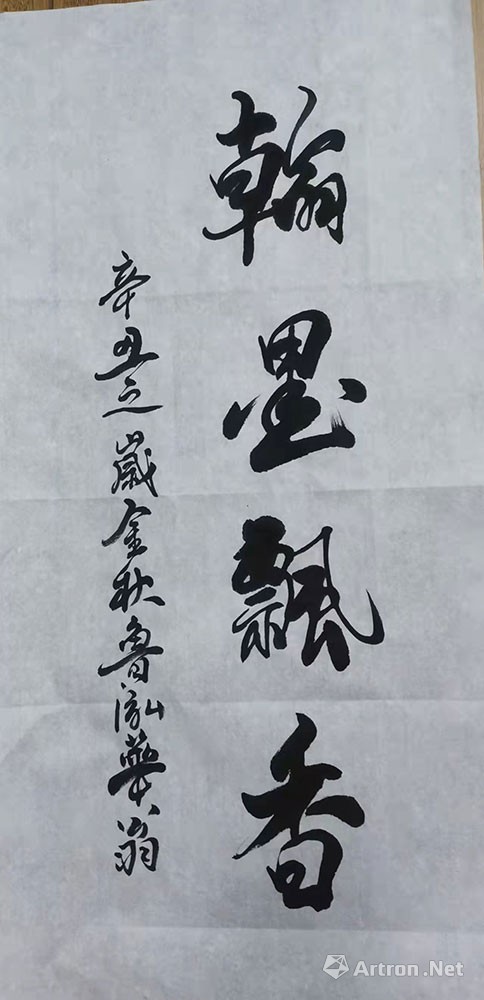 翰墨飘香
辛丑之歲金秋魯泓華翁
Artron.Net